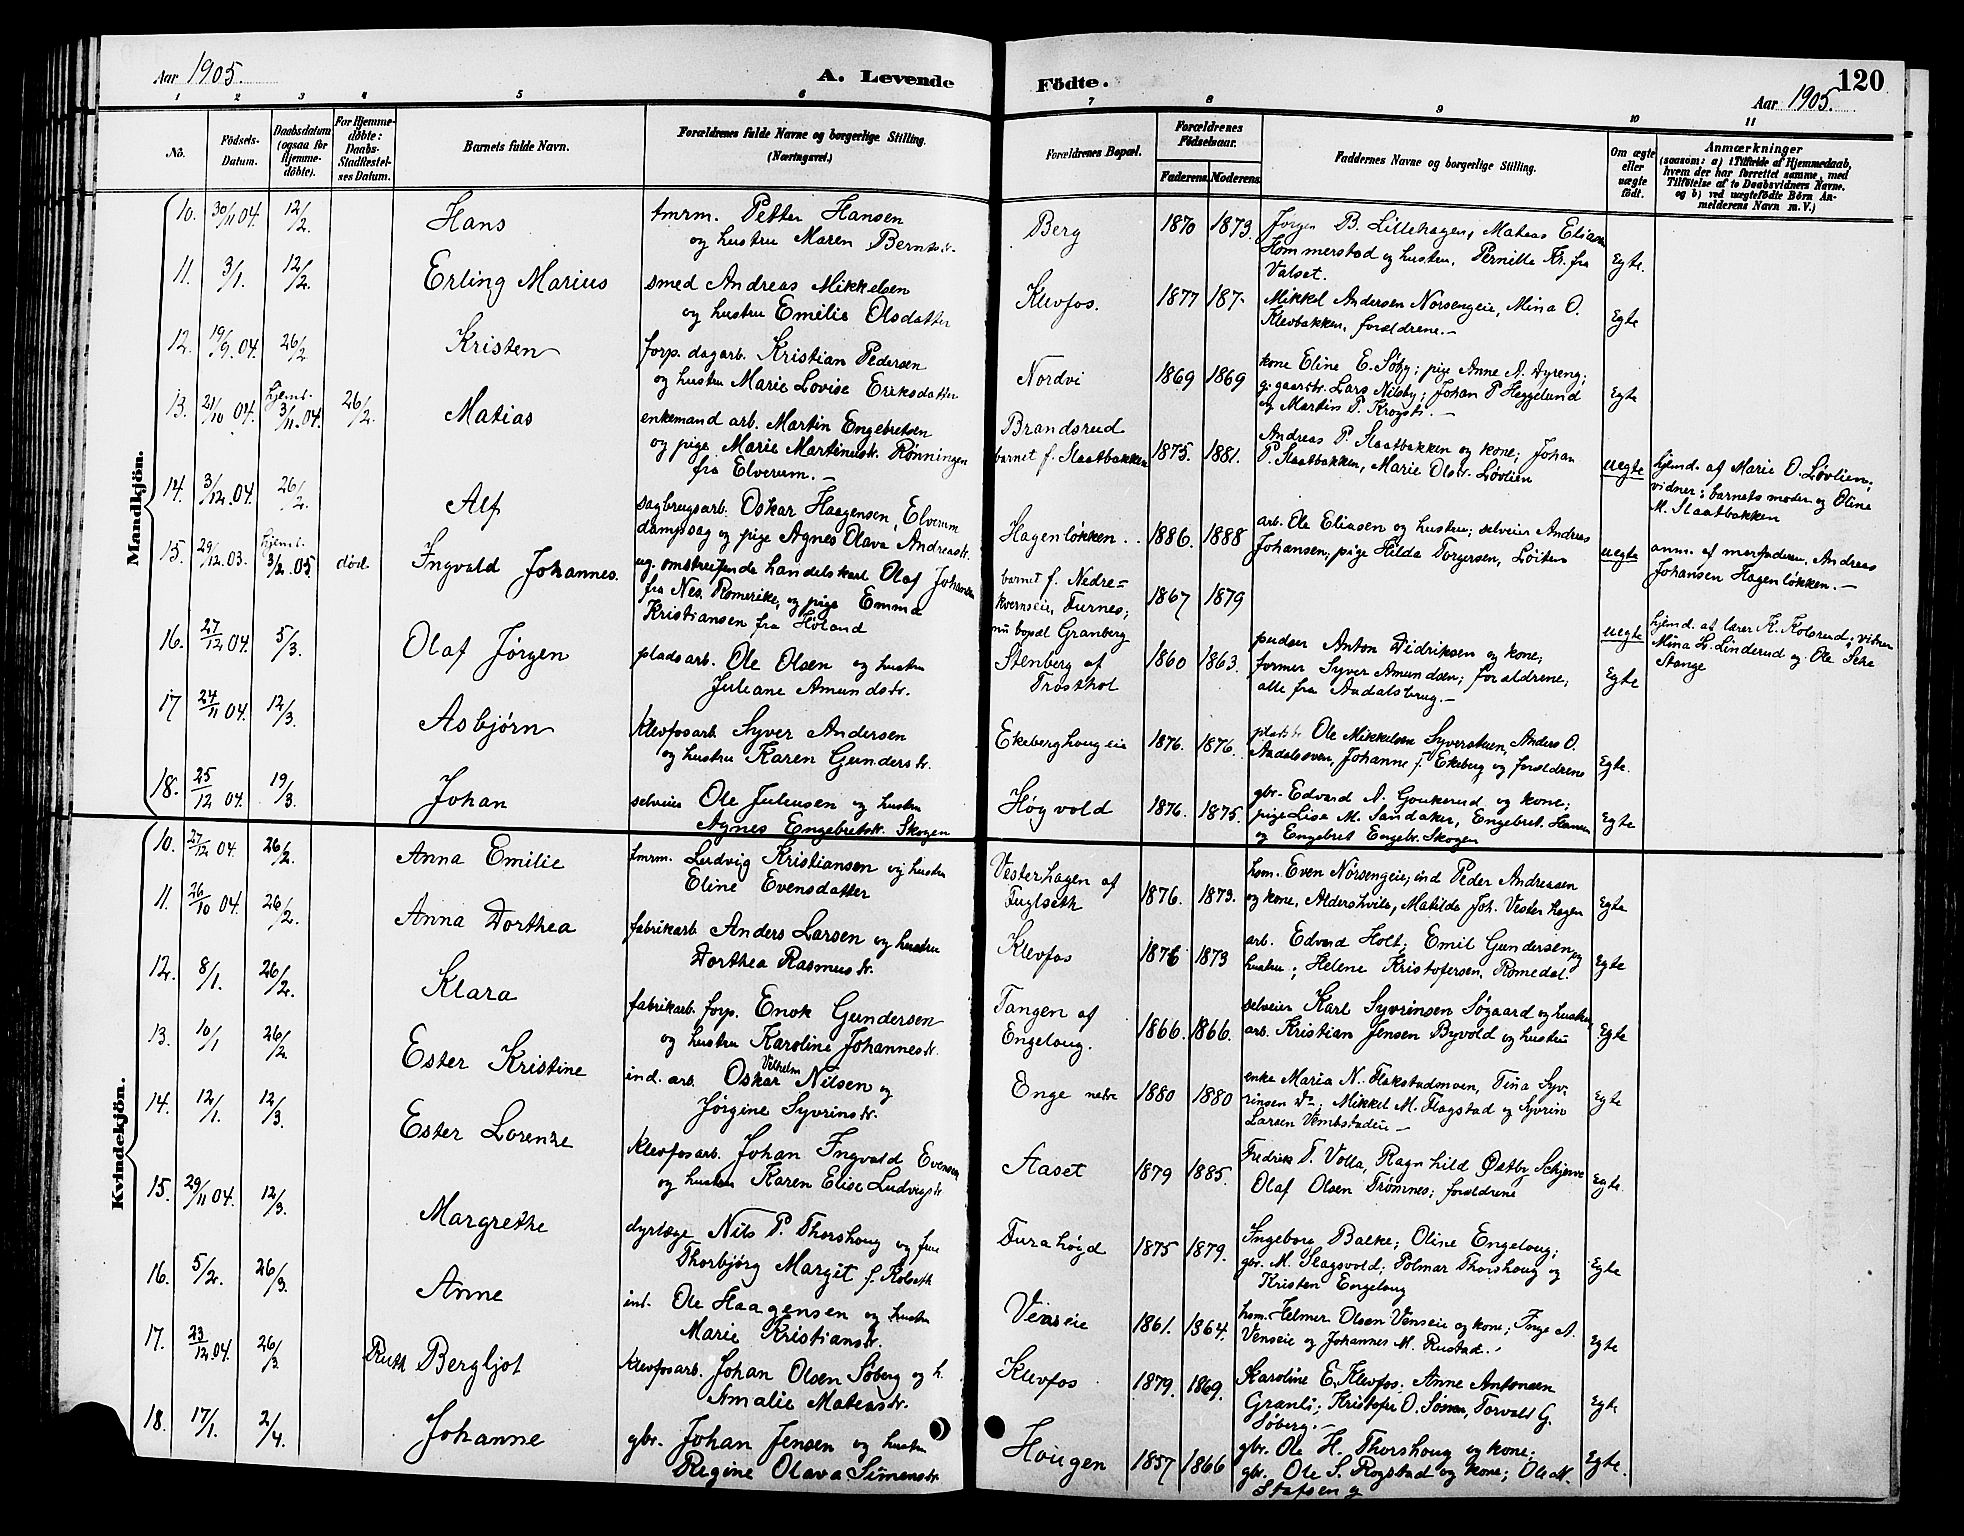 Aar 1905.
A. Levende
Födte.
120
Aar 1905.
1 2 3 4 5 6 7 8 9 10 11
No.
Födsels-
Datum.
Daabsdatum
(ogsaa for
Hjemme-
döbte).
For Hjemme-
döbte:
Daabs-
Stadfestel-
ses Datum.
Barnets fulde Navn.
Forældrenes fulde Navne og borgerlige Stilling.
(Næringsvei.)
Forældrenes Bopæl.
Forældrenes
Födselsaar.
Faderens. Moderens.
Faddernes Navne og borgerlige Stilling.
Om ægte
eller
uægte
födt.
Anmærkninger
(saasom: a) i Tilfælde af Hjemmedaab,
hvem der har forrettet samme, med
Tilföielse af to Daabsvidners Navne,
og b) ved uægtefödte Börn An-
melderens Navn m. V.)
Mandkjön.
10. 30/11 04. 12/2. Hans
tmrm. Petter Hansen
og hustru Maren Berntsdr.
Berg 1870 1873.
Jørgen B. Lillehagen, Mateas Eliasen
Hommerstad og hustru, Pernille Kr. fra
Valset.
Egte.
11. 3/1. 12/2. Erling Marius
smed Andreas Mikkelsen
og hustru Emilie Olsdatter
Klevfos. 1877 187-
Mikkel Andersen Norsengeie, Mina O.
Klevbakken, forældrene.-
Egte
12. 19/9. 04. 26/2 Kristen
forp. dagarb. Kristian Pedersen
og hustru Marie Lovise Eriksdatter
Nordvi 1869 1869
kone Eline E. Søby; pige Anne A. Dyreng;
g. gaardbr. Lars Nilsby; Johan P Heggelund
og Martin P. Krogstr.-
Egte
13. 21/10 04. hjemd. 3/11.04. 26/2. Matias
enkemand arb. Martin Engebretsen
og pige Marie Martinusdr. Rønningen
fra Elverum.-
Brandsrud
barnet f. Slaatbakken 1875. 1881.
Andreas P. Slaatbakken og kone; Johan
P. Slaatbakken, Marie Olsdr. Løvlien
uegte
hjemd. af Marie O. Løvlien;
vidner: barnets moder og Oline
M. Slaatbakken
14. 3/12.04. 26/2. Alf
sagbrugsarb. Oskar Haagensen, Elverum
dampsag og pige Agnes Olava Andreasdr.
Hagenløkken.. 1886. 1888
arb. Ole Eliasen og hustru; selveier Andreas
Johansen; pige Hilda Torgersen, Løiten
uegte
anm. af morfaderen, Andreas
Johansen Hagenløkken.-
15. 29/12.03. hjemd. 3/2.05. død. Ingvald Johannes.
ug. omstreifende handelskarl Olaf Johansen
fra Nes, Romerike, og pige Emma
Kristiansen fra Høland
barnet f. Nedre-
kvernseie, Furnes;
nu bopæl Granberg
1867 1879
uegte
hjemd. af lærer K. Kolsrud; vidner
Mina L. Linderud og Ole Sexe
Stange
16. 27/12 04. 5/3. Olaf Jørgen
pladsarb. Ole Olsen og hustru
Juliane Amundsdr.
Stenberg af
Frosthol 1860 1863.
pudser Anton Didriksen og kone;
former Syver Amundsen; forældrene;
alle fra Aadalsbrug.-
Egte
17 24/11 04. 12/3. Asbjørn
Klevfosarb. Syver Andersen
og hustru Karen Gundersdr.
Ekeberghougeie 1876. 1876.
pladsbr. Ole Mikkelsen Syverstuen, Anders O.
Aadalsoven, Johanne f. Ekeberg og forældrene
Egte.
18. 25/12 04. 19/3. Johan
selveier Ole Juliusen og hustru
Agnes Engebretsdr. Skogen
Høgvold 1876. 1875.
gbr. Edvard A. Goukerud og kone;
pige Lisa M. Sandaker, Engebret Hansen
og Engebret Engebr. Skogen
Egte
Kvindekjön.
10. 27/12 04. 26/2. Anna Emilie
tmrm. Ludvig Kristiansen og hustru
Eline Evensdatter
Vesterhagen af
Fuglseth 1876. 1873.
hsm. Even Nørsengeie; ind Peder Andreasen
og kone, Aldershvile, Matilde Joh. Vesterhagen
Egte
11. 26/10 04. 26/2. Anna Dorthea
fabrikarb Anders Larsen og hustru
Dorthea Rasmusdr.
Klevfos 1876 1873
arb. Edvard Holt; Emil Gundersen og
hustru; Helene Kristofersen, Romedal.
Egte
12. 8/1. 26/2. Klara
fabrikarb. forp. Enok Gundersen
og hustru Karoline Johannesdr.
Tangen af
Engeloug. 1866. 1866.
selveier Karl Syvrinsen Søgaard og hustru,
arb. Kristian Jensen Byvold og hustru
Egte
13. 10/1 26/2 Ester Kristine
ind. arb. Oskar Vilhelm Nilsen og
Jørgine Syvrinsdr.
Enge nedre 1880 1880
enke Maria N. Flakstadmoen, Tina Syv-
rinsen do; Mikkel M. Flagstad og Syvrin
Larsen Vembstadeie-
Egte
14. 12/1. 12/3. Ester Lorenze
Klevfosarb. Johan Ingvald Evensen
og hustru Karen Elise Ludvigsdr
Aaset 1879 1885.
Fredrik T. Volla, Ragnhild Østby Schjerve
Olaf Olsen Trømnes; forældrene
Egte.
15. 29/11 04. 12/3. Margrethe
dyrlæge Nils P. Thorshoug og frue
Thorbjørg Margit f. Kolseth
Furahøgd 1875 1879.
Ingeborg Balke; Oline Engeloug;
gbr. M. Slagsvold; Polmar Thorshoug og
Kristen Engeloug
Egte
16. 5/2. 26/3. Anne
ind. Ole Haagensen og hustru
Marie Kristiansdr.
Venseie 1861. 1864.
hsm. Helmer Olsen Venseie og kone; Inge A.
Venseie og Johannes M. Rustad.-
Egte
17. 23/12.04. 26/3 Ruth Bergljot
Klevfosarb. Johan Olsen Søberg og h.
Amalie Mateasdr.
Klevfos 1879. 1869.
Karoline E. Klevfos. Anne Antonsen
Granli; Kristofer O. Søssen, Torvald G.
Søberg.-
Egte
18. 17/1. 2/4. Johanne
gbr. Johan Jensen og hustru
Regine Olava Simensdr.
Hougen 1857 1866
gbr. Ole H. Thorshoug og kone;
gbr. Ole S. Rogstad og kone; Ole M.
Stafsen og
Egte.